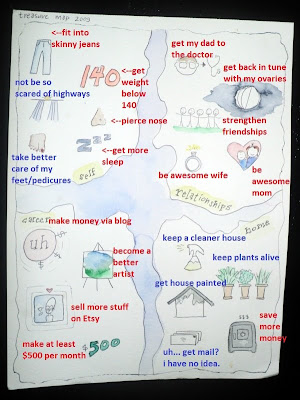 treasure map 2009
<--fit into
skinny jeans
not be so
scared of highways
140
<--get
weight
below
140
<--pierce nose
zzz
<--get more
sleep
take better
care of my
feet/pedicures
self
get my dad to
the doctor
get back in tune
with my ovaries
strengthen
friendships
be awesome wife
be
awesome
mom
relationships
career
make money via blog
uh
become a
better
artist
sell more stuff
on Etsy
make at least
$500 per month
$500
home
keep a cleaner house
keep plants alive
get house painted
$$$
save
more
money
uh... get mail?
i have no idea.